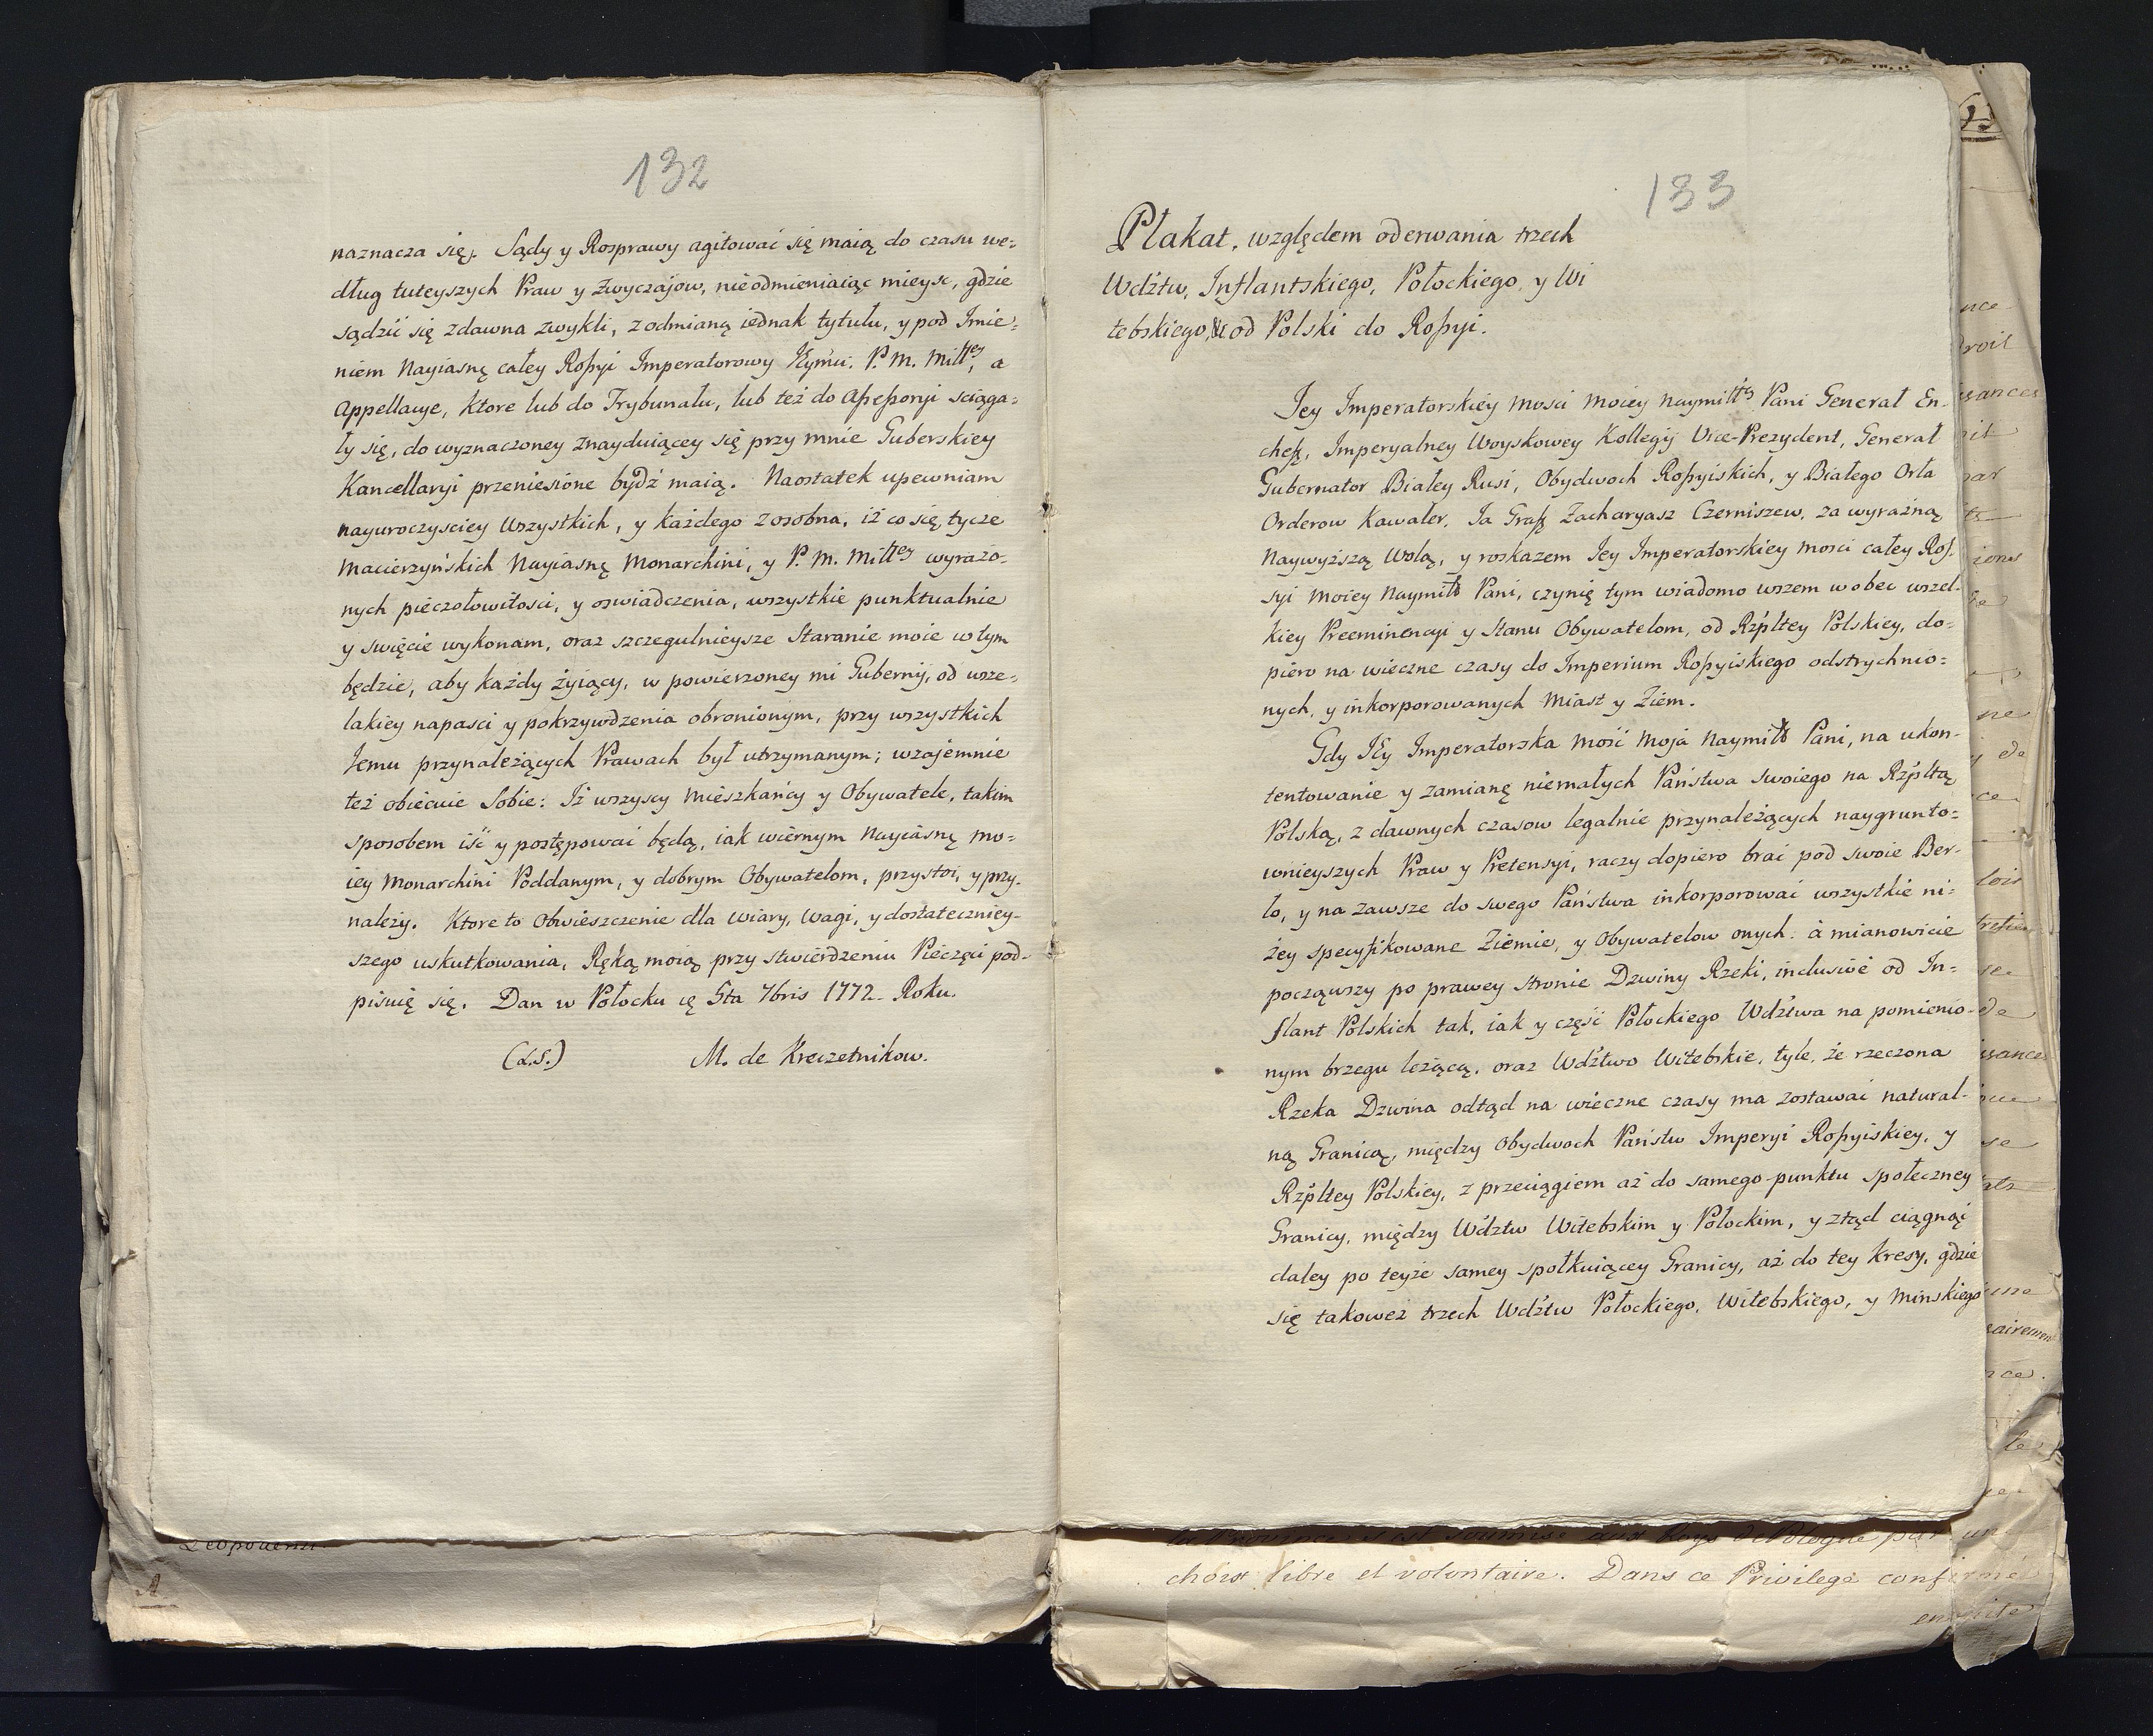 132
naznacza się. Sądy y Rosprawy agitować się maią do czasu we=
dług tuteyszych Praw y Zwyczajow, nieodmieniaiąc mieysc, gdzie
sądzić się zdawna zwykli, z odmianą iednak tytułu, y pod Imie=
niem Nayiasnę całey Roſsyi Imperatorowy P. M. Miłłey, a
Appellacye, Ktore lub do Trybunału, lub też do Aſseſsoryi sciąga=
ły się, do wyznaczoney znayduiącey się przy mnie Guberskiey
Kancellaryi przeniesióne bydź maią. Naostatek upewniam
nayuroczysciey Wszystkich, y każdego z osobna, iż co się tycze
Macierzyńskich Nayiasnę Monarchini, y P. M. Miłłey wyrażo=
nych pieczołowitosci, y oswiadczenia, wszystkie punktualnie
y swięcie wykonam, oraz szczegulnieysze Staranie moie w tym
będzie, aby każdy żyiący, w powierzoney mi Gubernij, od wsze=
lakiey napasci y pokrzywdzenia obronionym, przy wszystkich
Jemu przynależących Prawach był utrzymanym; wzajemnie
też obiecuie Sobie: Iż wszyscy Mieszkańcy y Obywatele, takim
sposobem iść y postępować będą, iak wiernym Nayiasnę mo=
iey Monarchini Poddanym, y dobrym Obywatelom, przystoi, y przy=
należy. Ktore to Obwieszczenie dla Wiary, Wagi, y dostateczniey=
szego uskutkowania, Ręką moią przy stwierdzeniu Pieczęci pod=
pisuię się. Dan w Połocku ię 5ta 7bris 1772. Roku.
(L.S.) M. de Kreczetnikow.
133
Plakat, względem oderwania trzech
Wdztw, Inflantskiego, Połockiego, y Wi
tebskiego, od Polski do Roſsyi.
Jey Imperatorskiey Mosci moiey Naymiłłs Pani General En-
cheff, Imperyalney Woyskowey Kollegij Vice-Prezydent, General
Gubernator Białey Rusi, Obydwoch Roſsyiskich, y Białego Orła
Orderow Kawaler, Ja Graff Zacharyasz Czerniszew, za wyraźną
Naywyższą Wolą, y roskazem Jey Imperatorskiey Mosci całey Roſ-
syi Moiey Naymiłł Pani, czynię tym wiadomo wszem w obec wszel-
kiey Preeminencyi y Stanu Obywatelom, od Rzpltey Polskiey, do=
piero na wieczne czasy do Imperium Roſsyiskiego odstrychnio=
nych, y inkorporowanych Miast y Ziem.
Gdy JEy Imperatorska Mość Moja Naymiłł Pani, na ukon-
tentowanie y zamianę niemałych Państwa swoiego na Rzpltą
Polską, z dawnych czasow legalnie przynależących naygrunto=
wnieyszych Praw y Pretensyi, raczy dopiero brać pod swoie Ber-
ło, y na zawsze do swego Państwa inkorporować wszystkie ni=
żey specyfikowane Ziemie, y Obywatelow onych: à mianowicie
począwszy po prawey stronie Dzwiny Rzeki, inclusivè od In=
flant Polskich tak, iak y część Połockiego Wdztwa na pomienio-
nym brzegu leżącą, oraz Wdztwo Witebskie, tyle, że rzeczona
Rzeka Dzwina odtąd na wieczne czasy ma zostawać natural-
ną Granicą, między Obydwoch Państw Imperyi Roſsyiskiey, y
Rzpltey Polskiey, z przeciągiem aż do samego punktu społeczney
Granicy, między Wdztw Witebskim y Połockim, y ztąd ciągnąć
daley po teyże samey społkuiącey Granicy, aż do tey Kresy, gdzie
się takoweż trzech Wdztw Połockiego, Witebskiego, y Minskiego
la Province s'est soumise aux Loys de Pologne par un
choix libre et volontaire. Dans ce Privilege confirmé
ensuite